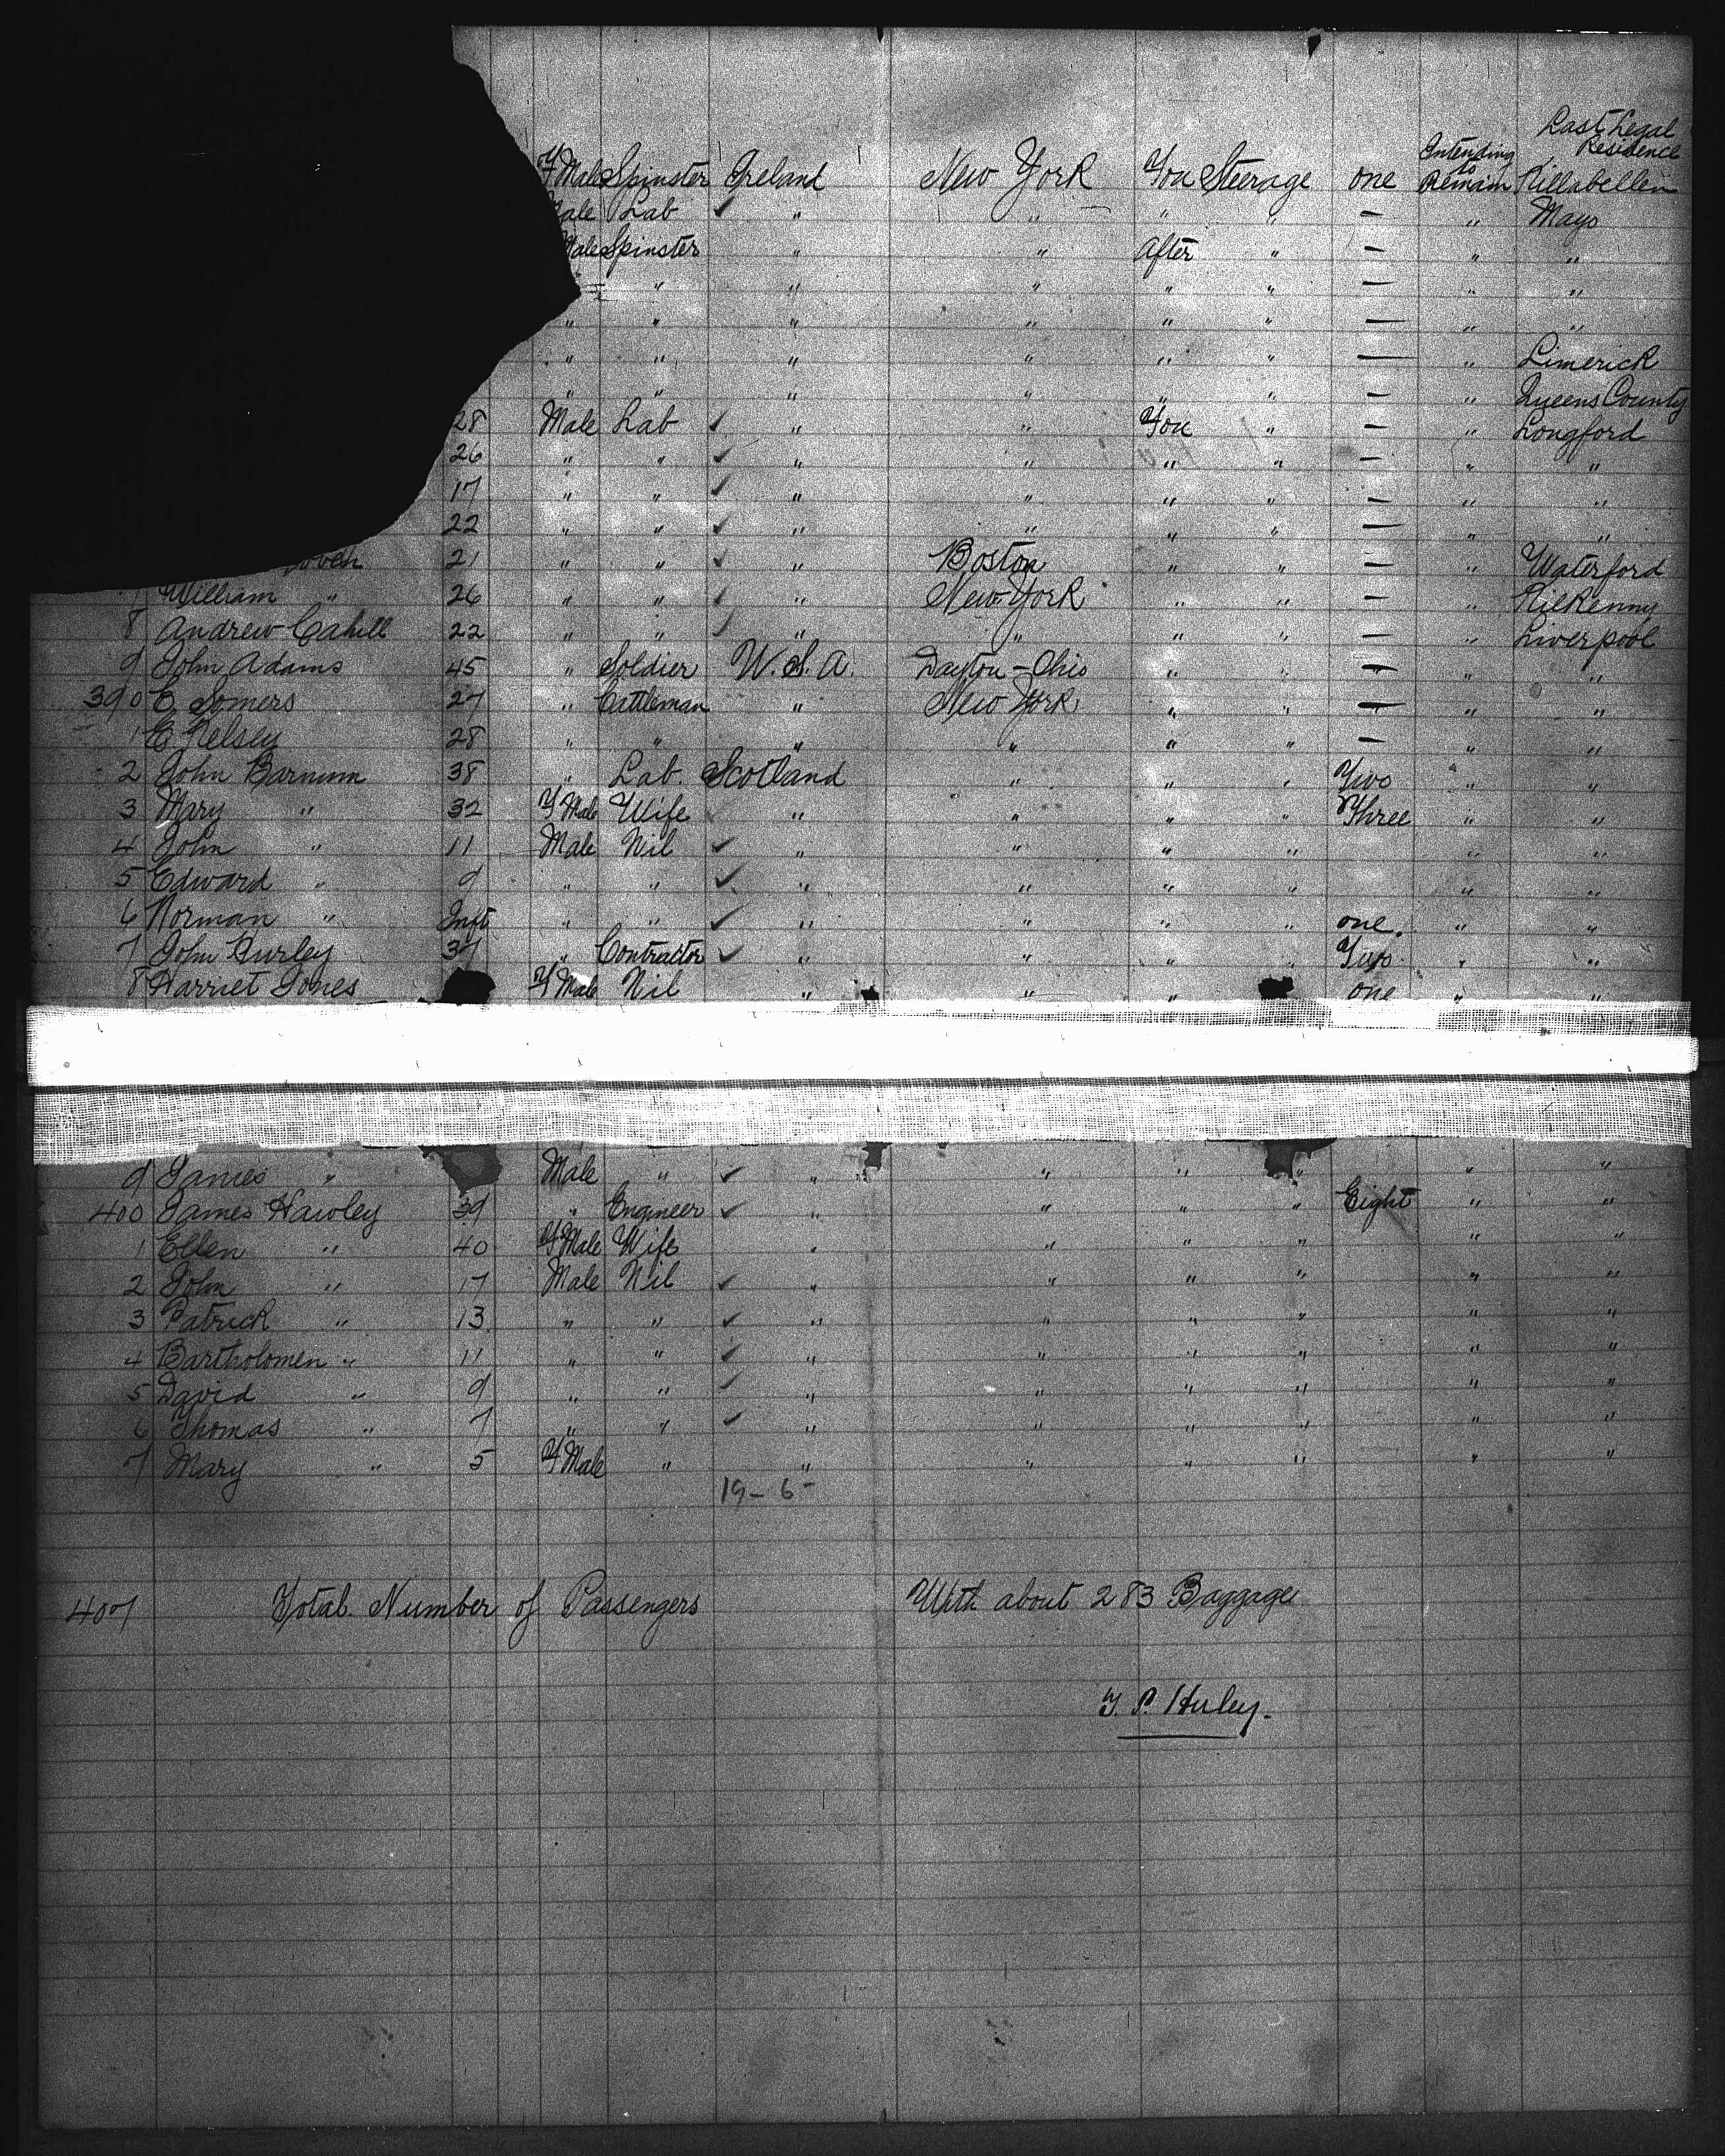 Last Legal
Residence
F Male Spinster Ireland New York For Steerage one Intending to Remain Killabellen
Male Lab ✓ " " " " — " Mayo
Male Spinster " " After " — " "
" " " " " — " "
" " " " " " — " "
" " " " " " — " Limerick
" " " " " " — " Queens County
28 Male Lab ✓ " " For " — " Longford
26 " " ✓ " " " " — " "
17 " " ✓ " " " " — " "
22 " " ✓ " " " " — " "
21 " " ✓ " Boston " " — " Waterford
William " 26 " " ✓ " New York " " — " Kilkenny
8 Andrew Cahill 22 " " ✓ " " " " — " Liverpool
9 John Adams 45 " Soldier U.S.A. Dayton - Ohio " " — " "
390 E Somers 27 " Cattleman " New York " " — " "
1 E Kelsey 28 " " " " " " — " "
2 John Barnum 38 " Lab. Scotland " " " Two " "
3 Mary " 32 F Male Wife " " " " Three " "
4 John " 11 Male Nil ✓ " " " " " "
5 Edward " 9 " " ✓ " " " " " "
6 Norman " Inft " " ✓ " " " " one. " "
7 John Hurley 37 " Contractor ✓ " " " " Two " "
8 Harriet Jones F Male Nil " " " one " "
9 James " Male " ✓ " " " " " "
400 James Hawley 39 " Engineer ✓ " " " " Eight " "
1 Ellen " 40 F Male Wife " " " " " "
2 John " 17 Male Nil ✓ " " " " " "
3 Patrick " 13 " " ✓ " " " " " "
4 Bartholomew " 11 " " ✓ " " " " " "
5 David " 9 " " ✓ " " " " " "
6 Thomas " 7 " " ✓ " " " " " "
7 Mary " 5 F Male " " " " " " "
19 - 6 -
407 Total Number of Passengers With about 283 Baggage